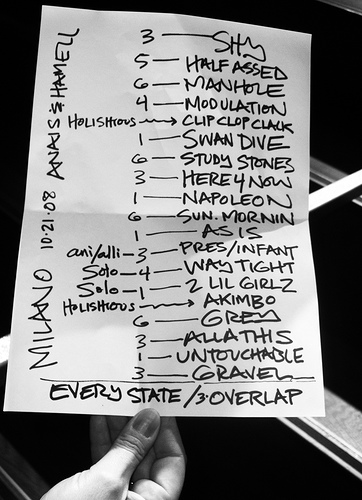 3 — SHY
5 — HALF ASSED
6 — MANHOLE
4 — MODULATION
HOLISHTROUS → CLIP CLOP CLACK
1 — SWAN DIVE
6 — STUDY STONES
3 — HERE 4 NOW
1 — NAPOLEON
6 — SUN. MORNIN
1 — AS IS
ani/alli — 3 — PRES/INFANT
Solo — 4 — WAY TIGHT
Solo — 1 — 2 LIL GIRLZ
HOLISHTROUS → AKIMBO
6 — GREY
3 — ALLA THIS
1 — UNTOUCHABLE
3 — GRAVEL
EVERY STATE / 3. OVERLAP
MILANO 10.21.08 ANAIS & HAMELL